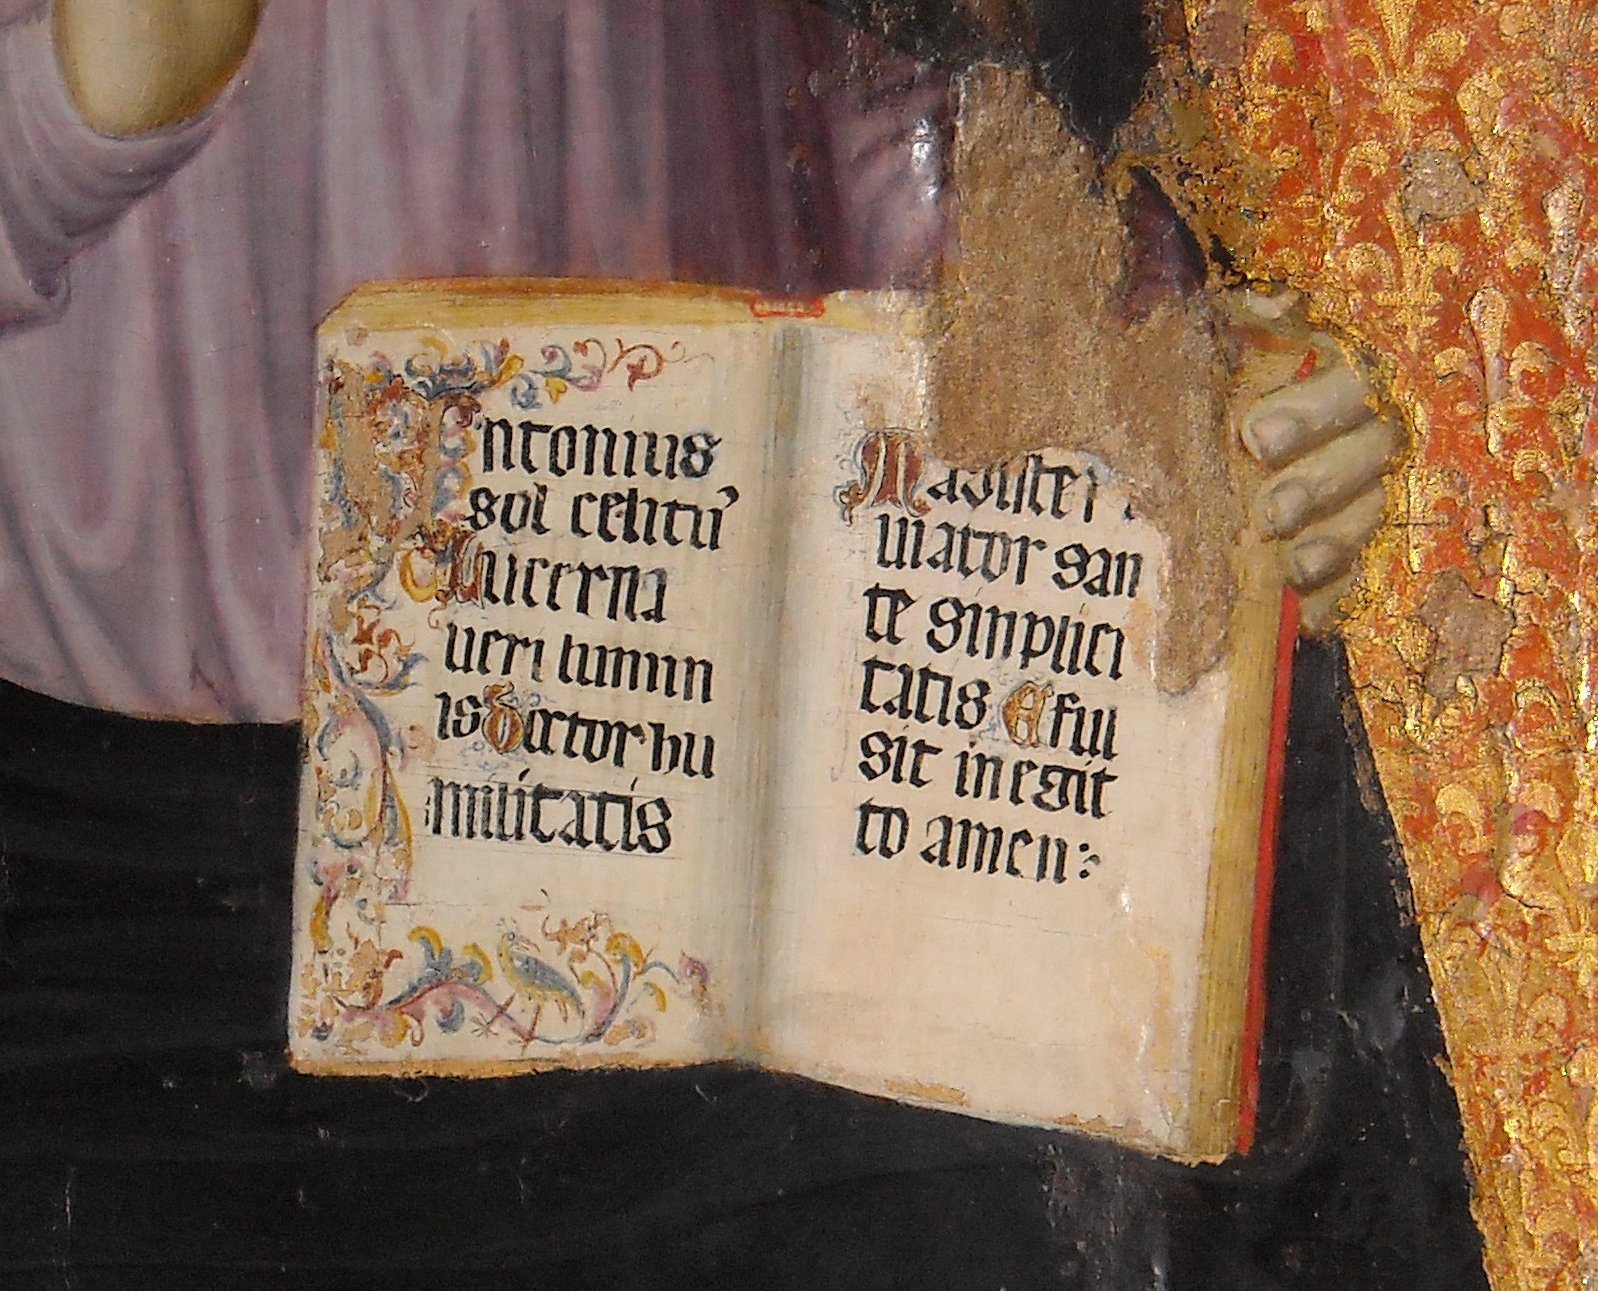 ntonius
sol celitu᾽
Lucerna
ueri lumin
is doctor hu
militatis
Magiste
uiator san
te simplici
tatis Efui
sit in egit
to amen: